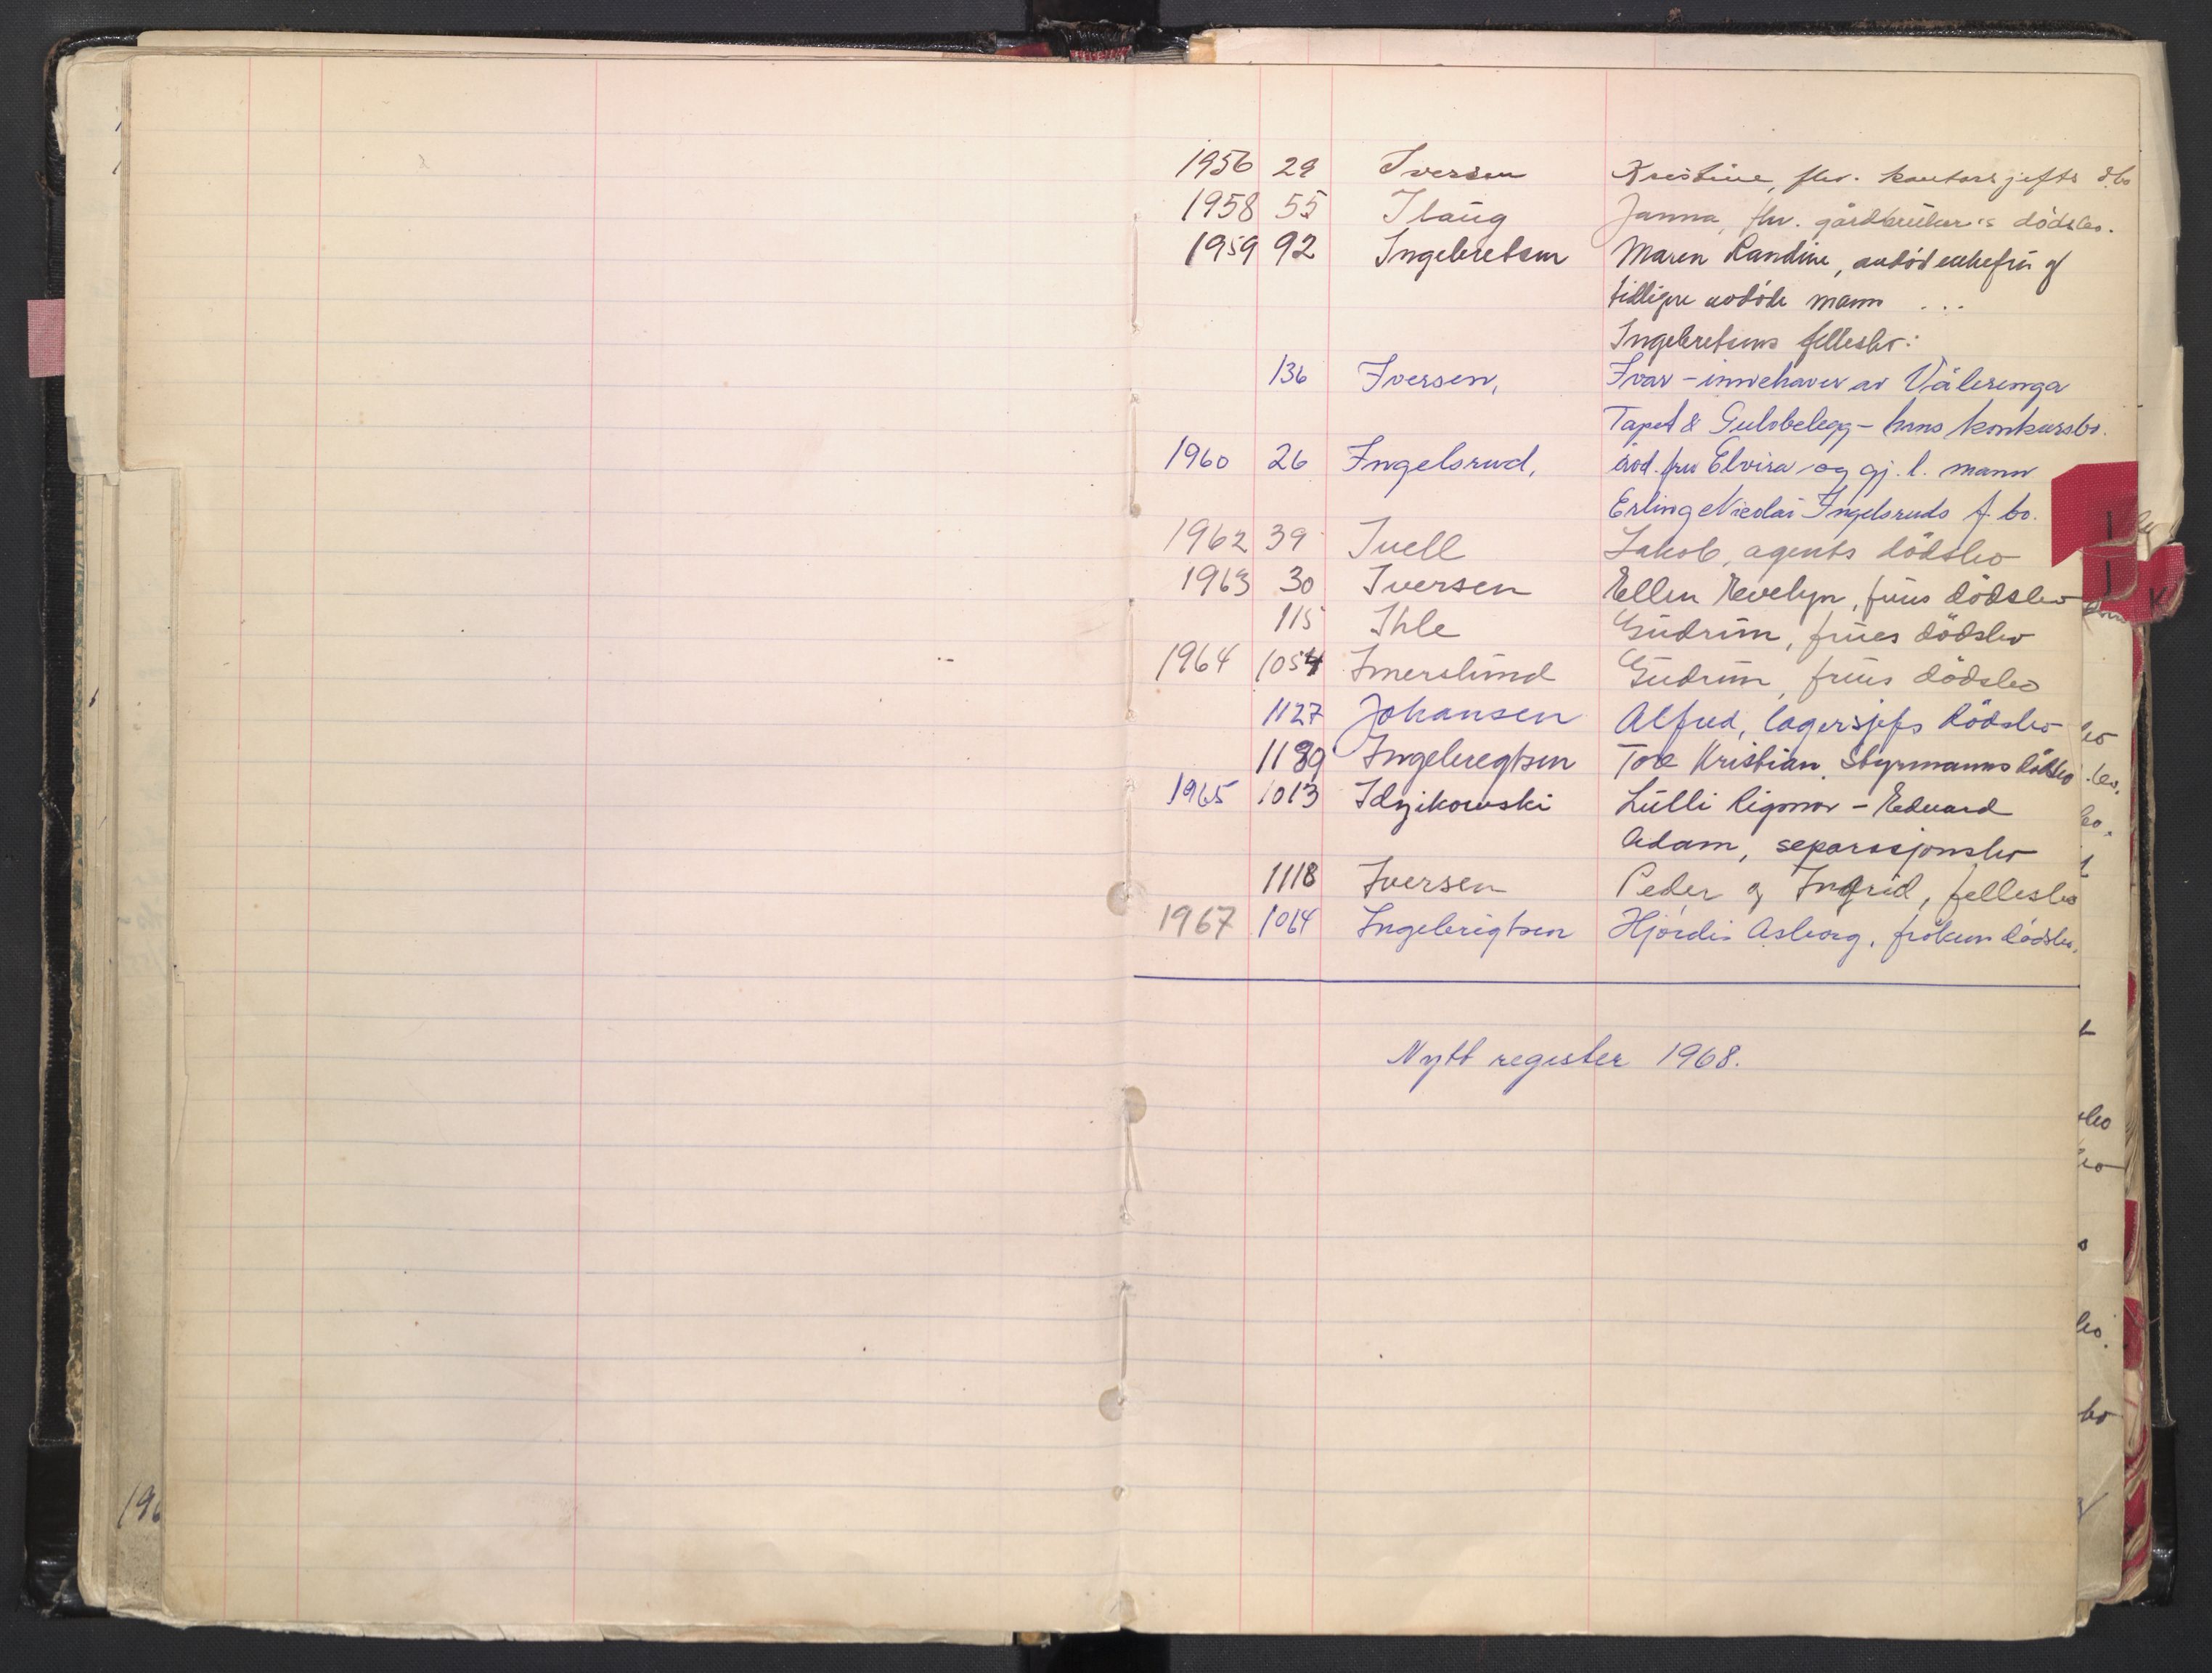 1956 29 Iversen Kristine, fhv. kontorsjefs d.bo
1958 55 Ilaug Janna, fhv. gårdbruker's dödsbo.
1959 92 Ingebretsen Maren Randine, avdöd enkefru og
tidligere avdöde mann ...
Ingebretsens fellesbo:
136 Iversen, Ivar - innehaver av Vålerenga
Tapet & Gulvbelegg - hans konkursbo.
1960 26 Ingelsrud, avd. fru Elvira og gj. l. mann
Erling Nicolai Ingelsruds f. bo.
1962 39 Juell Jakob, agents dödsbo
1963 30 Iversen Ellen Evelyn, frues dödsbo
115 Ihle Gudrun, frues dödsbo
1964 1054 Imerslund Gudrun, frues dödsbo
1127 Johansen Alfred, lagersjefs dödsbo
1189 Ingebregtsen Tore Kristian, Styrmanns dödsbo
1965 1013 Idzikowski Lulli Rigmor - Eduard
Adam, separasjonsbo
1118 Iversen Peder og Ingrid, fellesbo
1967 1064 Ingebrigtsen Hjördis Asborg, fröken dödsbo.
Nytt register 1968.
I
J
K
196